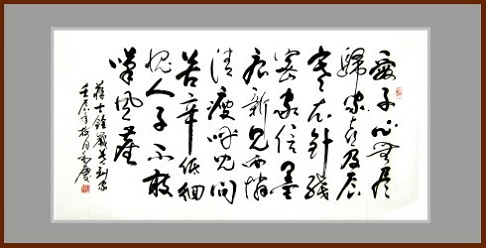 愛子心無尽
歸家喜及辰
寒衣針线
密家信墨
痕新見面憐
清瘦呼兒問
苦辛低徊
愧人子不敢
嘆風塵
蒋士銓歲暮到家
壬辰年 月 慶